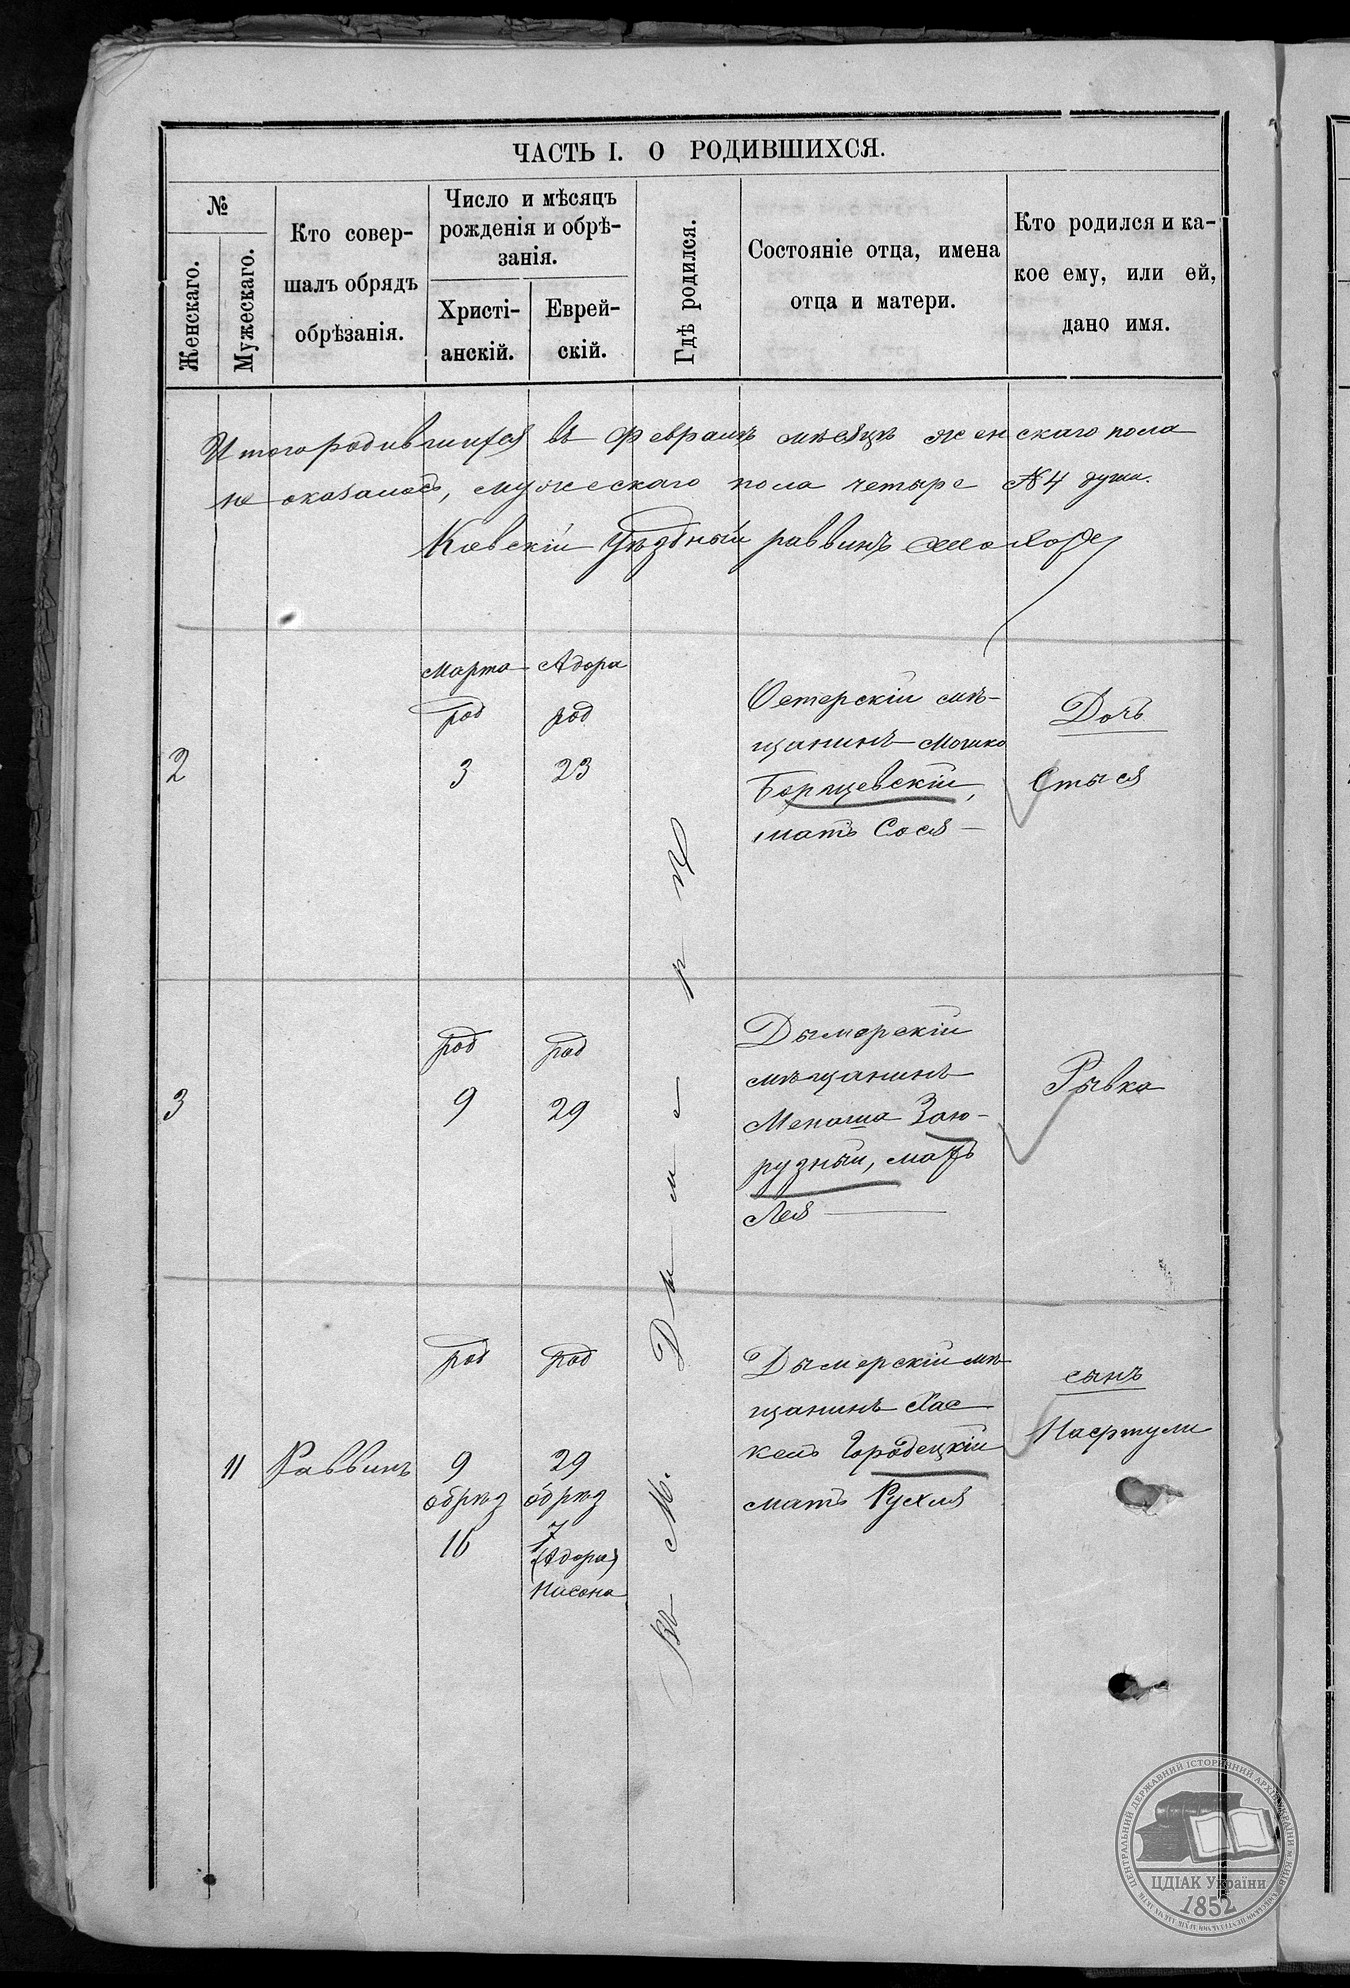 ЧАСТЬ I. О РОДИВШИХСЯ.
№
Женскаго.
Мужескаго.
Кто совер-
шалъ обрядъ
обрѣзанія.
Число и мѣсяцъ
рожденія и обрѣ-
занія.
Христі-
анскій.
Еврей-
скій.
Гдѣ родился.
Состояніе отца, имена
отца и матери.
Кто родился и ка-
кое ему, или ей,
дано имя.
Итого родившихся въ Февралѣ мѣсяцѣ женскаго пола
не оказалось, мужескаго пола четыре № 4 душъ.
Кіевскій Уѣздный раввинъ
Марта Адора
род род
2 3 23
Остерскій мѣ-
щанинъ Мошко
Борщевскій,
мать Сося
Дочь
Стыся
род род
3 9 29
Дымерскій
мѣщанинъ
Менаша Заю-
рузный, мать
Лея
Рывка
род род
11 Раввинъ 9 29
обрѣз обрѣз
16 7
(Адора)
Нисона
Дымерскій мѣ-
щанинъ Хас
кель Городецкій
мать Рухля
сынъ
Нафтули
Въ М. Дымерѣ
ЦЕНТРАЛЬНИЙ ДЕРЖАВНИЙ ІСТОРИЧНИЙ АРХІВ УКРАЇНИ М. КИЇВ
ЦДІАК України
1852